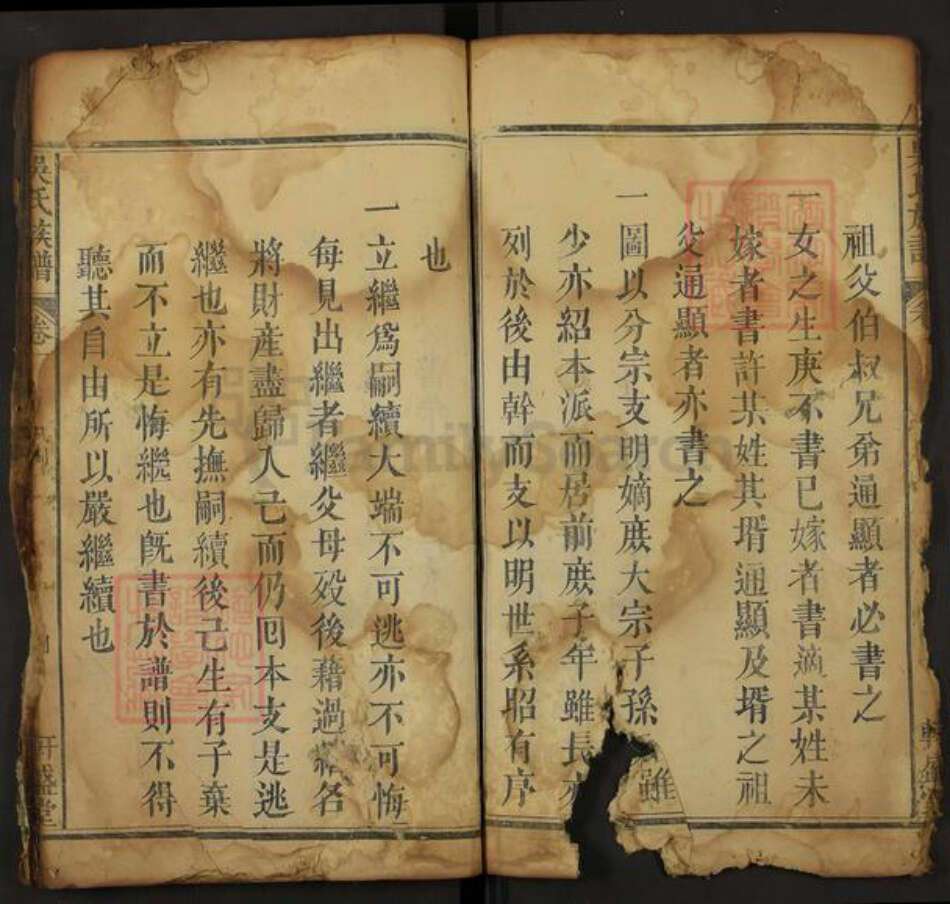 祖父伯叔兄弟通顯者必書之
一女之生庚不書已嫁者書適某姓未
嫁者書許某姓其壻通顯及壻之祖
父通顯者亦書之
一圖以分宗支明嫡庶大宗子孫雖
少亦紹本派而居前庶子年雖長亦
列於後由幹而支以明世系昭有序
也
一立繼為嗣續大端不可逃亦不可悔
每見出繼者繼父母歿後藉過繼名
將財產盡歸入己而仍囘本支是逃
繼也亦有先撫嗣續後己生有子棄
而不立是悔繼也旣書於譜則不得
聽其自由所以嚴繼續也
吳氏族譜
卷
軒盛堂
FamilySearch